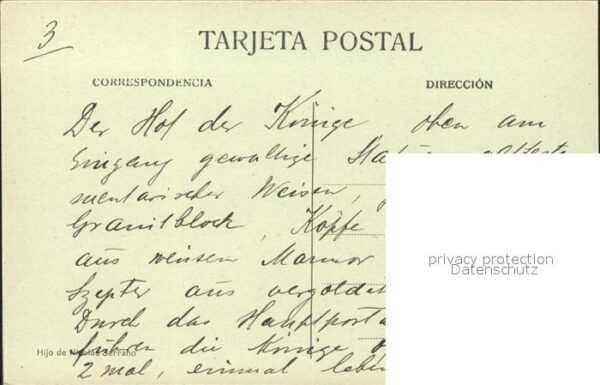 3
TARJETA POSTAL
CORRESPONDENCIA
DIRECCIÓN
Der Hof der Könige oben am
Eingang gewaltige
mentarischer Weisen,
Granitblock, Köpfe
aus weissen Marmor
Szepter aus
Durch das Hauptport
führen die Könige
2 mal, einmal
Hijo de Nicolás Serrano
privacy protection
Datenschutz